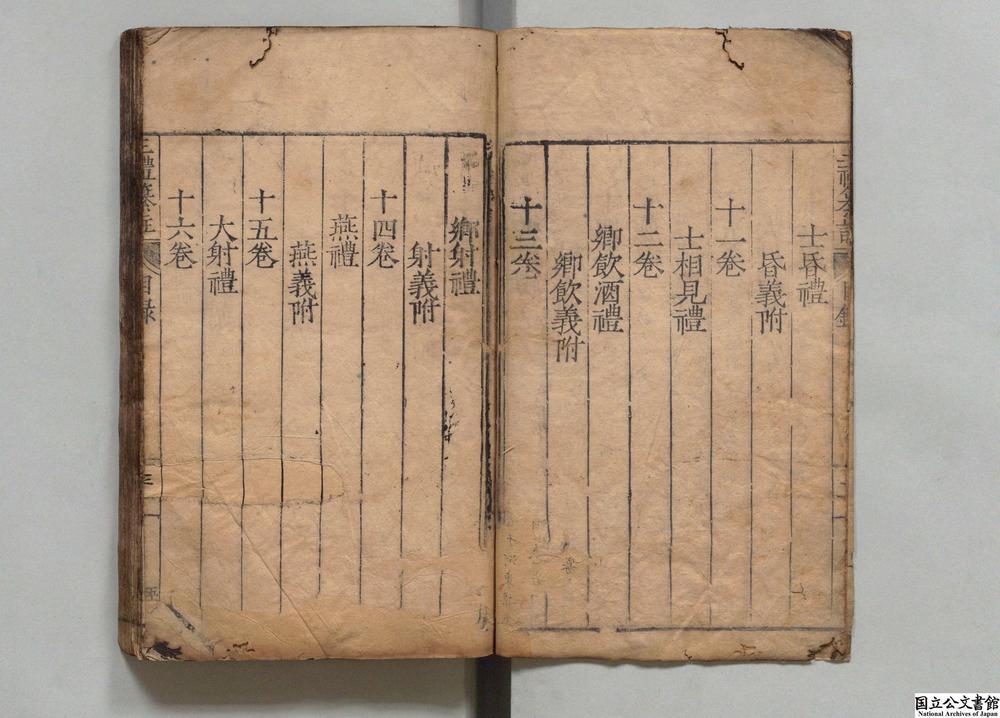 士昏禮
昏義附
十一卷
士相見禮
十二卷
鄉飲酒禮
鄉飲義附
十三卷
鄉射禮
射義附
十四卷
燕禮
燕義附
十五卷
大射禮
十六卷
三禮纂註
目錄
三
国立公文書館
National Archives of Japan